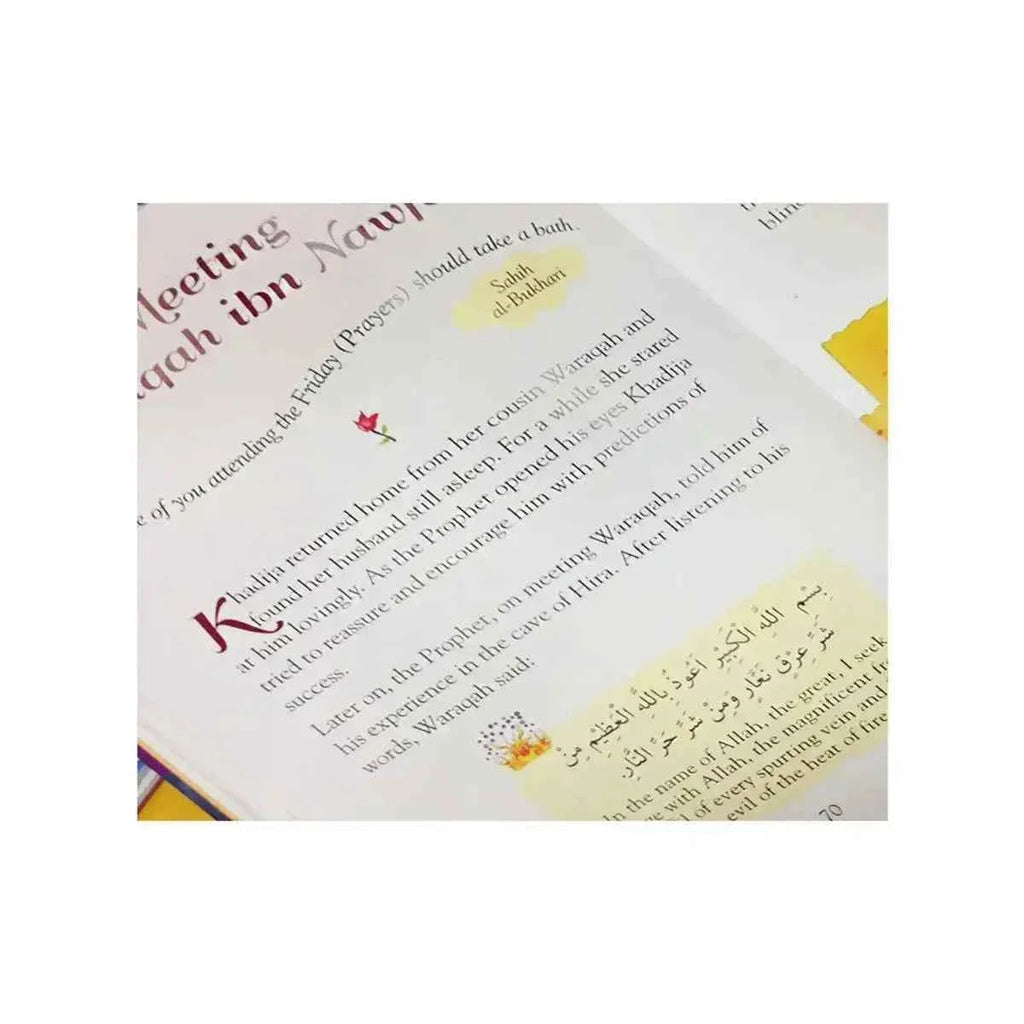 Meeting
qah ibn Nawf
e of you attending the Friday (Prayers) should take a bath.
Sahih
al-Bukhari
Khadija returned home from her cousin Waraqah and
found her husband still asleep. For a while she stared
at him lovingly. As the Prophet opened his eyes Khadija
tried to reassure and encourage him with predictions of
success.
Later on, the Prophet, on meeting Waraqah, told him of
his experience in the cave of Hira. After listening to his
words, Waraqah said:
بِسْمِ اللهِ الْكَبِيْرِ اَعُوْذُ بِاللهِ الْعَظِيْمِ مِنْ
شَرِّ عِرْقٍ نَعَّارٍ وَمِنْ شَرِّ حَرِّ النَّارِ
In the name of Allah, the great, I seek
ge with Allah, the magnificent fr
of every spurting vein and
evil of the heat of fire
70
blin